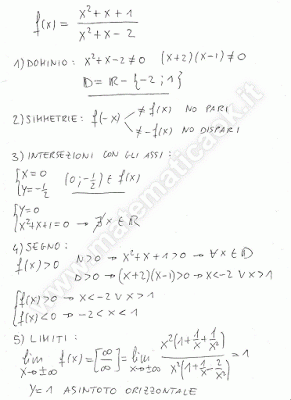 f(x) = (x²+x+1)/(x²+x-2)
1) DOMINIO: x²+x-2≠0 (x+2)(x-1)≠0
D = R-{-2;1}
2) SIMMETRIE: f(-x) ≠ f(x) NO PARI
≠ -f(x) NO DISPARI
3) INTERSEZIONI CON GLI ASSI:
{x=0
{y=-1/2 (0;-1/2) ∈ f(x)
{y=0
{x²+x+1=0 → ∄x∈R
4) SEGNO:
f(x)>0 N>0 → x²+x+1>0 → ∀x∈D
D>0 → (x+2)(x-1)>0 → x<-2 ∨ x>1
{f(x)>0 → x<-2 ∨ x>1
{f(x)<0 → -2<x<1
5) LIMITI:
lim x→±∞ f(x) = [∞/∞] = lim x→±∞ x²(1+1/x+1/x²)/x²(1+1/x-2/x²) = 1
y=1 ASINTOTO ORIZZONTALE
www.matematicaok.it